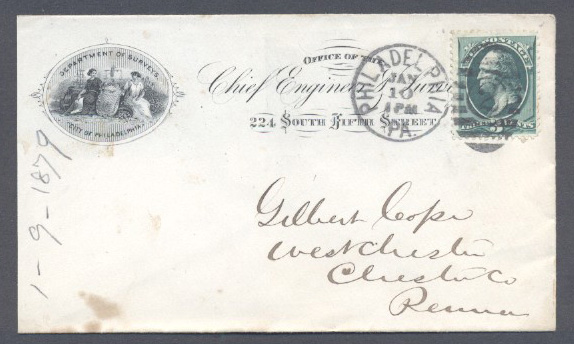 DEPARTMENT OF SURVEYS
CITY OF PHILADELPHIA
OFFICE OF THE
Chief Engineer & Surv
224 SOUTH FIFTH STREET
PHILADELPHIA
JAN
10
1 PM
PA.
U.S. POSTAGE
1-9-1879
Gilbert Cope
West Chester
Chester Co
Penna